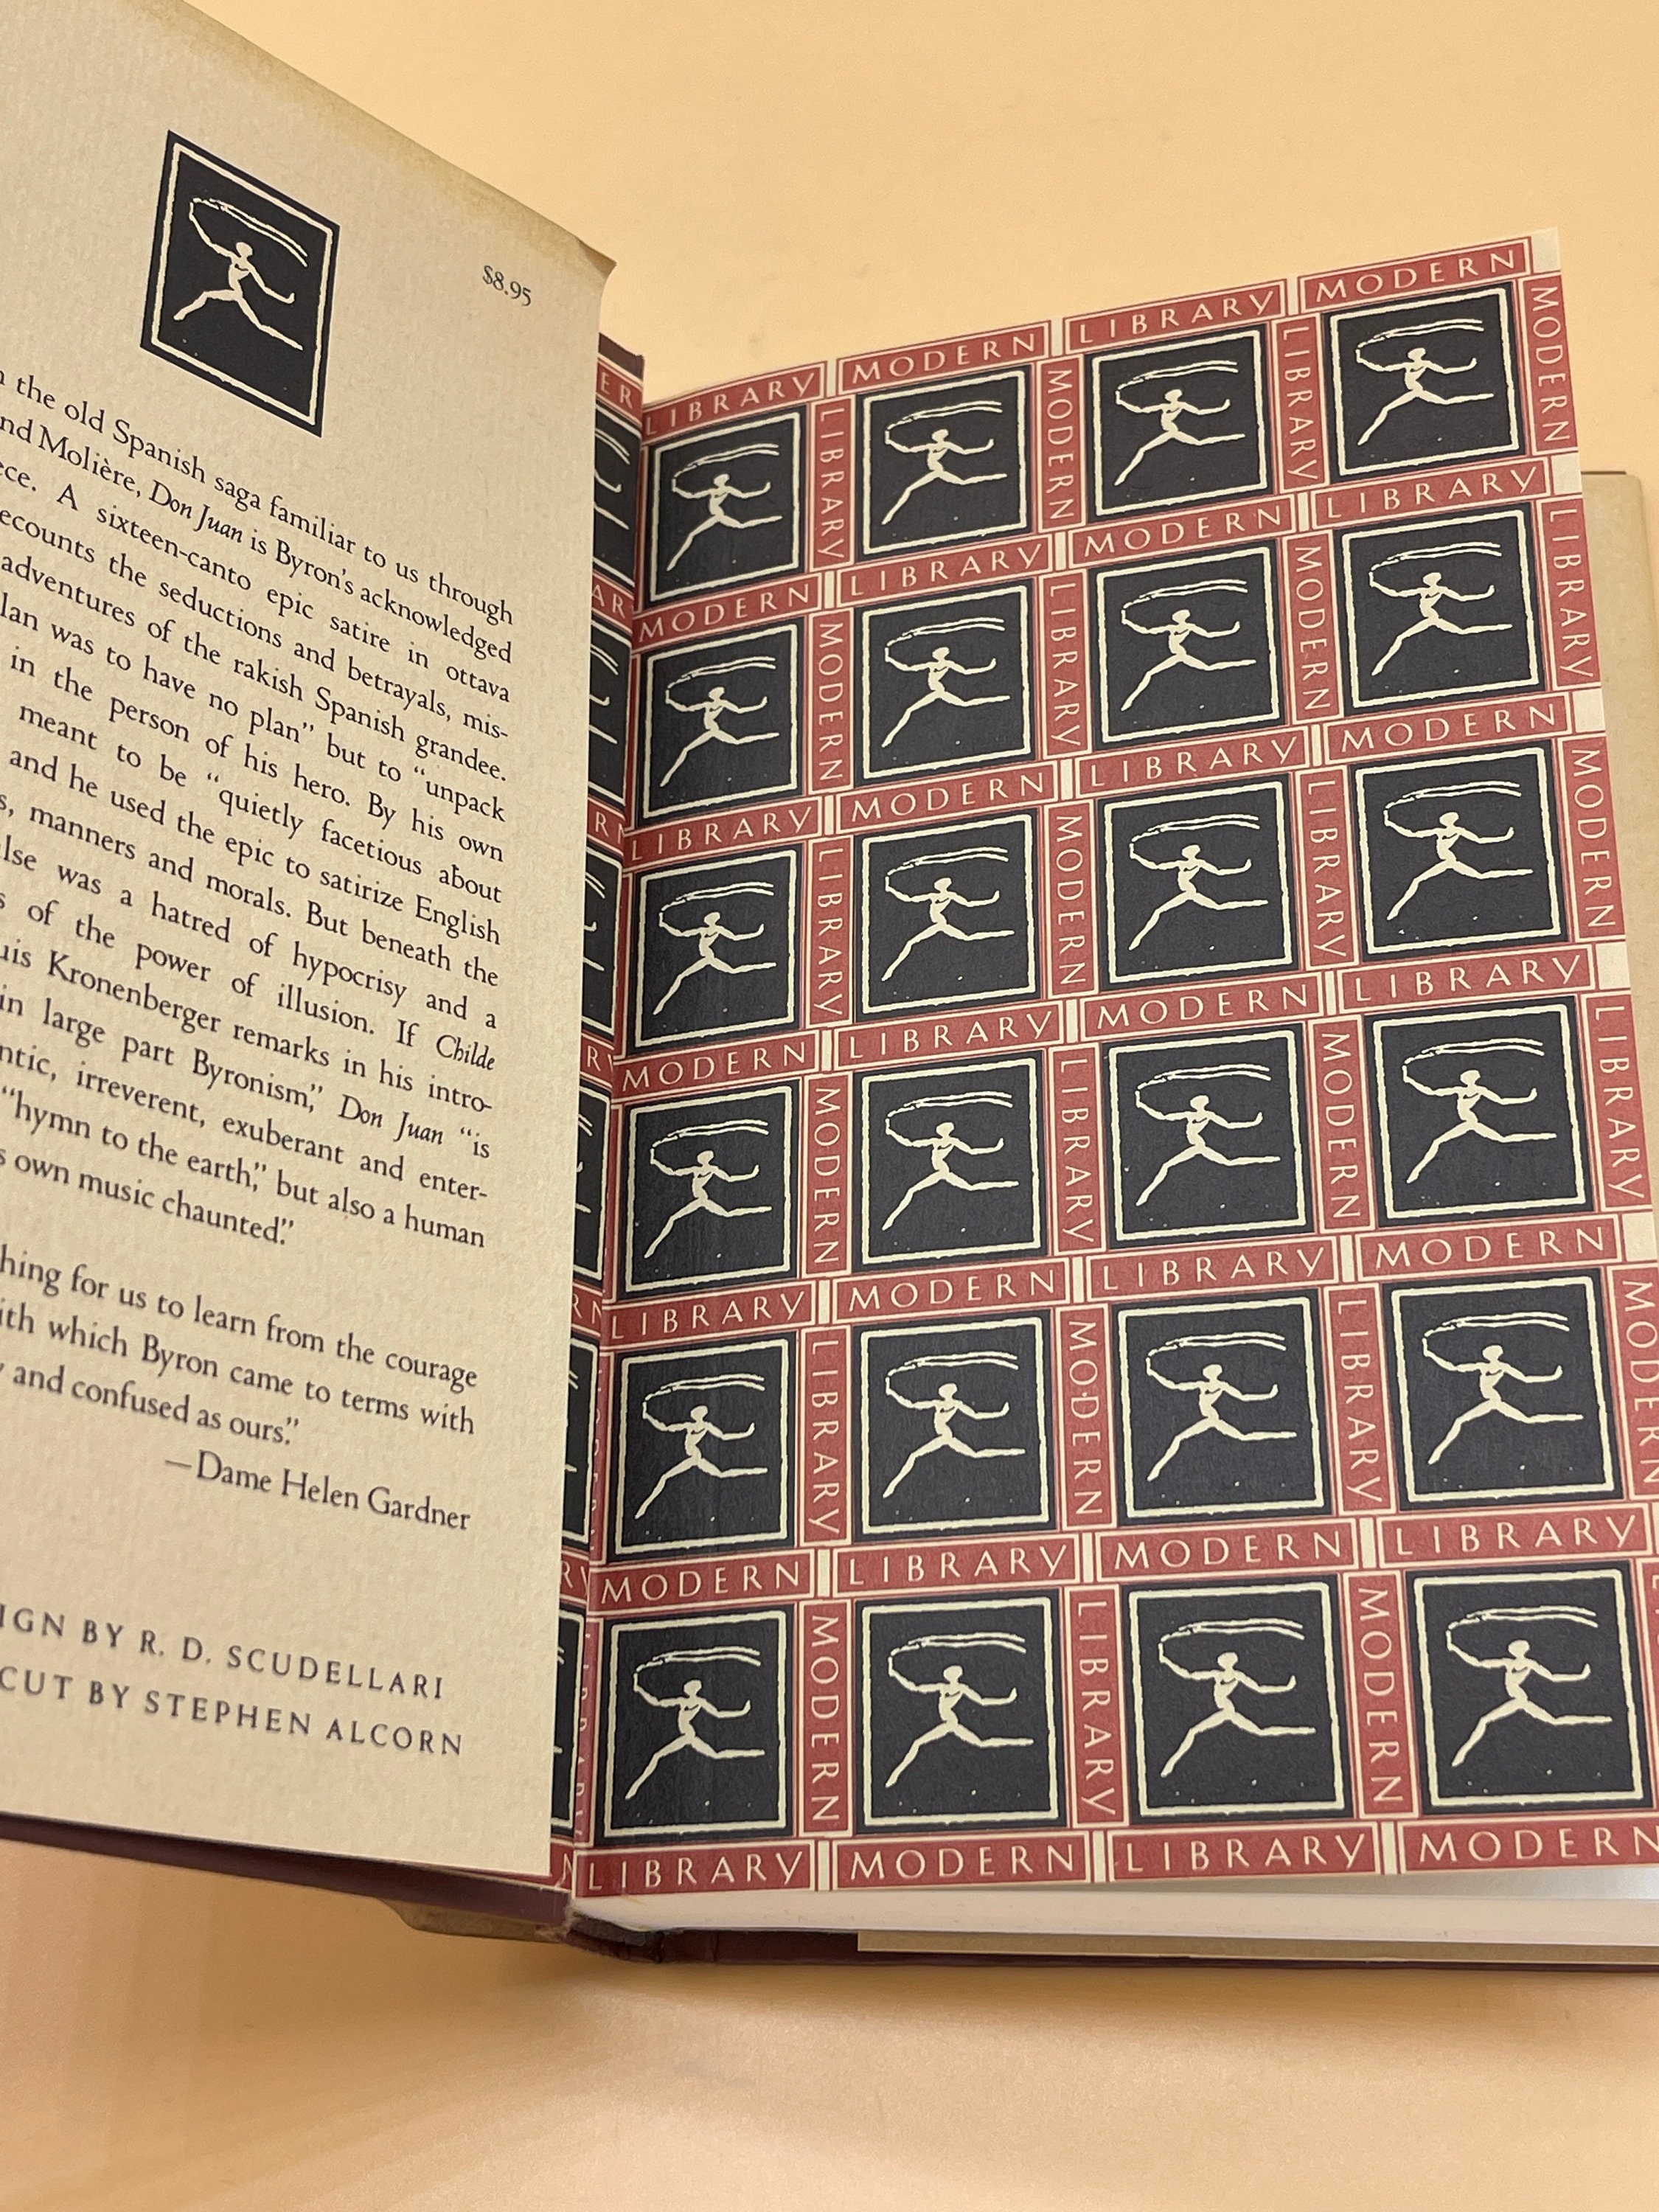 $8.95
the old Spanish saga familiar to us through
Molière, Don Juan is Byron's acknowledged
A sixteen-canto epic satire in ottava
the seductions and betrayals, mis-
adventures of the rakish Spanish grandee.
was to have no plan" but to "unpack
in the person of his hero. By his own
meant to be "quietly facetious about
and he used the epic to satirize English
manners and morals. But beneath the
was a hatred of hypocrisy and a
of the power of illusion. If Childe
Kronenberger remarks in his intro-
in large part Byronism," Don Juan "is
irreverent, exuberant and enter-
"hymn to the earth," but also a human
own music chaunted."
for us to learn from the courage
which Byron came to terms with
and confused as ours."
—Dame Helen Gardner
BY R. D. SCUDELLARI
BY STEPHEN ALCORN
LIBRARY MODERN LIBRARY MODERN
LIBRARY MODERN LIBRARY MODERN
MODERN LIBRARY MODERN LIBRARY
MODERN LIBRARY MODERN LIBRARY
LIBRARY MODERN LIBRARY MODERN
LIBRARY MODERN LIBRARY MODERN
MODERN LIBRARY MODERN LIBRARY
MODERN LIBRARY MODERN LIBRARY
LIBRARY MODERN LIBRARY MODERN
LIBRARY MODERN LIBRARY
MODERN LIBRARY MODERN LIBRARY
MODERN LIBRARY MODERN
LIBRARY MODERN LIBRARY MODERN